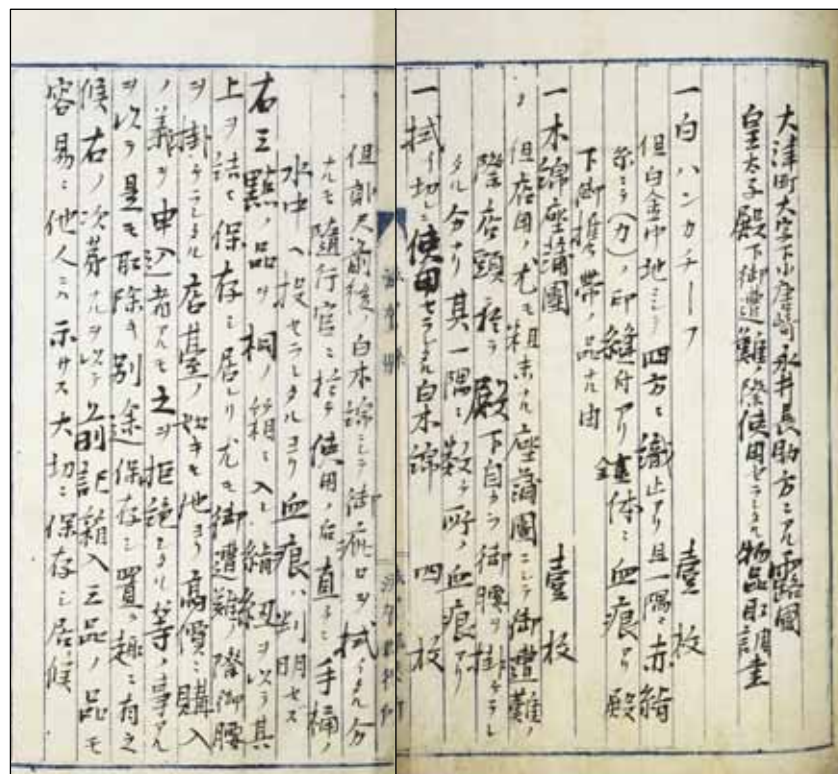 大津町大字下小唐崎永井長助方ニアル露國
皇太子殿下御遭難ノ際使用セラレタル物品取調書
一白ハンカチーフ 壹枚
但白金巾地ニシテ四方ニ織止アリ且一隅ニ赤絹
糸ニテ(カ)ノ印縫付アリ全体ニ血痕アリ殿
下御携帯ノ品ナル由
一木綿座蒲團 壹枚
但店用ノ尤モ粗末ナル座蒲團ニシテ御遭難ノ
際店頭ニ於テ殿下自カラ御腰ヲ掛ケラレ
タル分ナリ其一隅ニ数ケ所ノ血痕アリ
一拭イ切レニ使用セラレタル白木綿 四枚
但 白木綿ニシテ御疵口ヲ拭イタル分
ナルモ隨行官ニ於テ使用ノ后直チニ手桶ノ
水中ヘ投セラレタルヨリ血痕ハ判明セズ
右三點ノ品ハ桐ノ箱ニ入レ絹 ヲ以テ其
上ヲ結ヒ保存シ居レリ尤モ御遭難ノ際御腰
ヲ掛ケラレタル店臺ノ如キモ他ヨリ高價ニ購入
ノ義ヲ申込者アルモ之ヲ拒絶シタリ等ノ事アル
ヲ以テ是モ取除キ別途保存シ置ク趣ニ有之
候右ノ次第ナルヲ以テ前記箱入三品ノ品モ
容易ニ他人ニハ示サス大切ニ保存シ居候